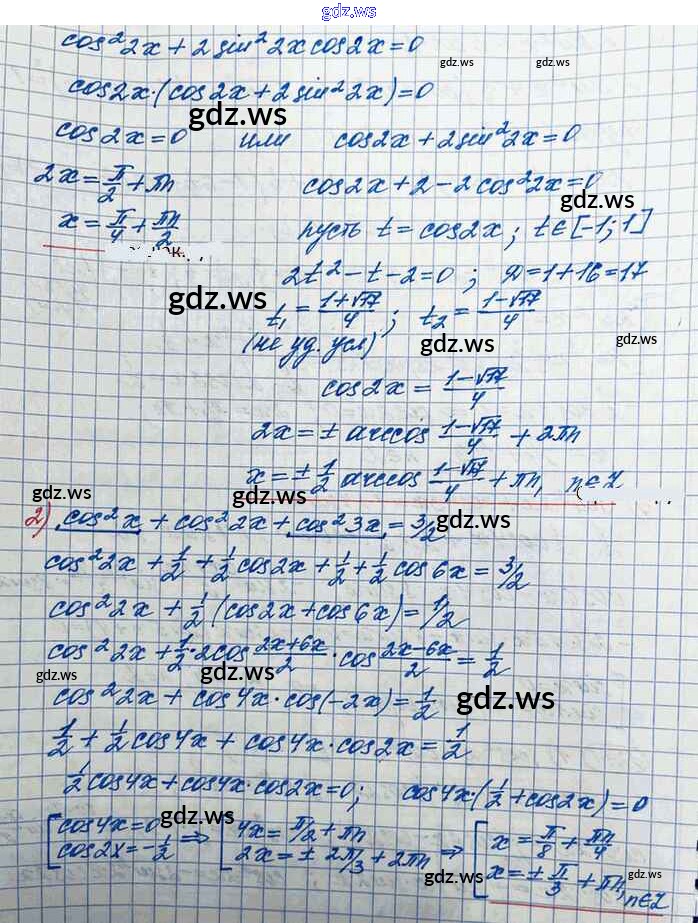 gdz.ws
cos²2x + 2sin²2x cos2x = 0
gdz.ws gdz.ws
cos2x·(cos2x + 2sin²2x) = 0
gdz.ws
cos2x = 0 или cos2x + 2sin²2x = 0
2x = π/2 + πn cos2x + 2 - 2cos²2x = 0
gdz.ws
x = π/4 + πn/2 пусть t = cos2x; t∈[-1; 1]
2t² - t - 2 = 0; D = 1 + 16 = 17
gdz.ws
t₁ = (1+√17)/4; t₂ = (1-√17)/4
(не уд. усл) gdz.ws gdz.ws
cos2x = (1-√17)/4
2x = ± arccos (1-√17)/4 + 2πn
x = ± 1/2 arccos (1-√17)/4 + πn, n∈Z
gdz.ws gdz.ws
2) cos²x + cos²2x + cos²3x = 3/2
gdz.ws
cos²2x + 1/2 + 1/2 cos2x + 1/2 + 1/2 cos6x = 3/2
cos²2x + 1/2 (cos2x + cos6x) = 1/2
cos²2x + 1/2·2cos (2x+6x)/2 · cos (2x-6x)/2 = 1/2
gdz.ws gdz.ws gdz.ws
cos²2x + cos4x·cos(-2x) = 1/2
gdz.ws
1/2 + 1/2 cos4x + cos4x·cos2x = 1/2
1/2 cos4x + cos4x·cos2x = 0; cos4x·(1/2 + cos2x) = 0
gdz.ws
[cos4x = 0 ⇒ [4x = π/2 + πn ⇒ [x = π/8 + πn/4
cos2x = -1/2 2x = ± 2π/3 + 2πn x = ± π/3 + πn, n∈Z
gdz.ws gdz.ws